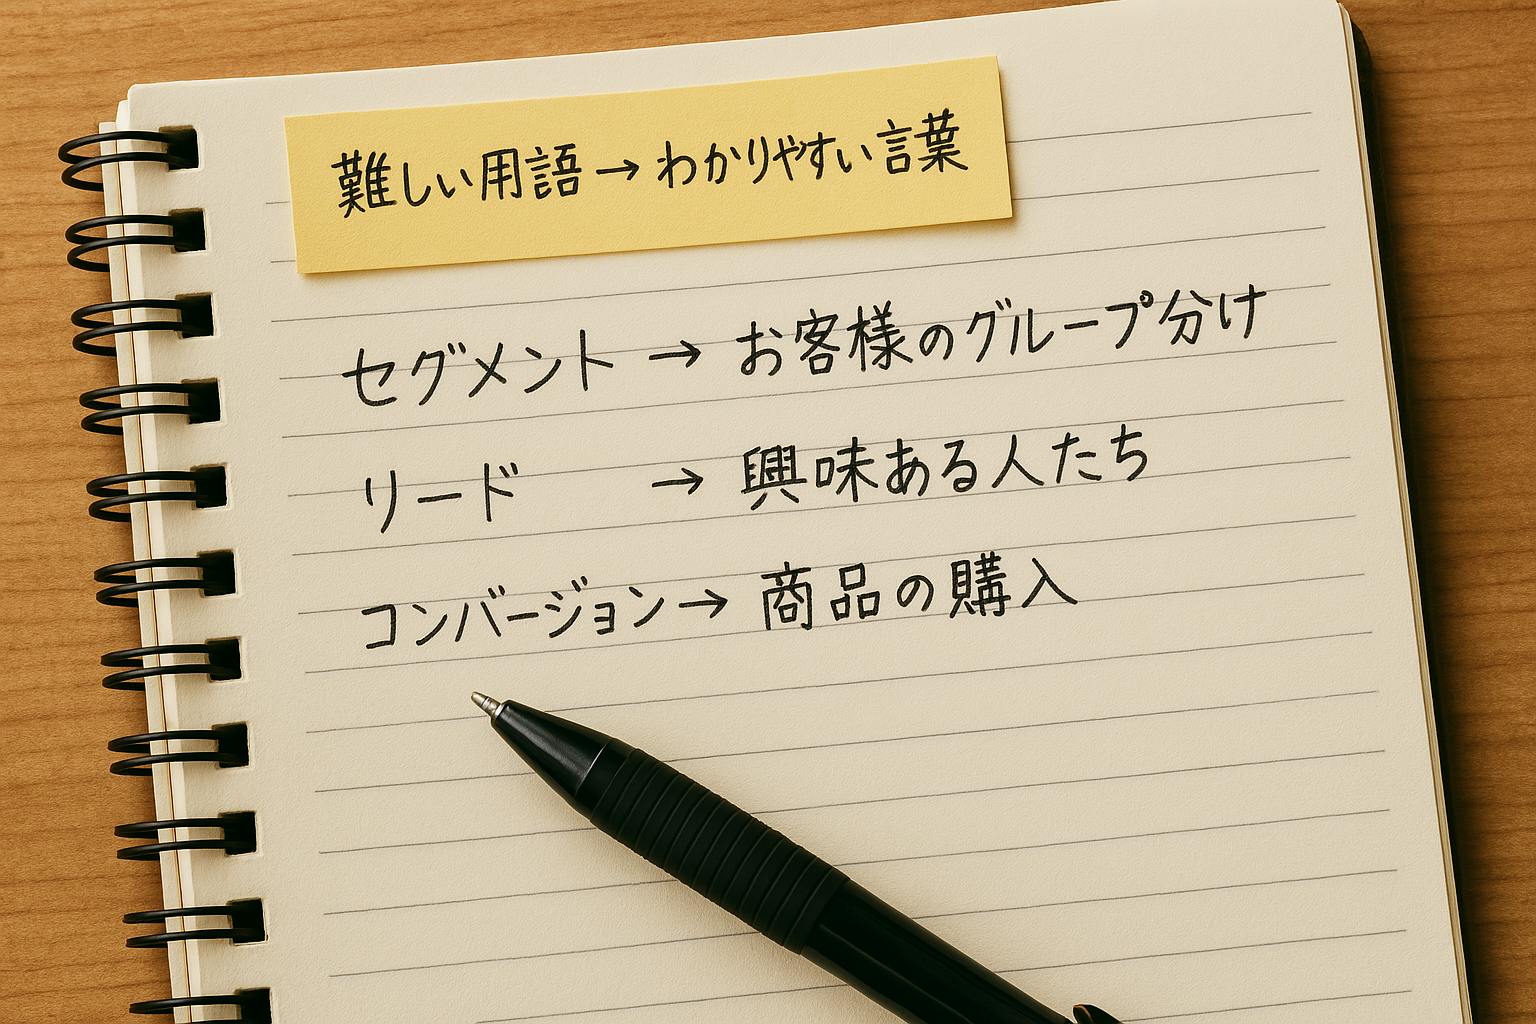 難しい用語→わかりやすい言葉
セグメント→お客様のグループ分け
リード→興味ある人たち
コンバージョン→商品の購入